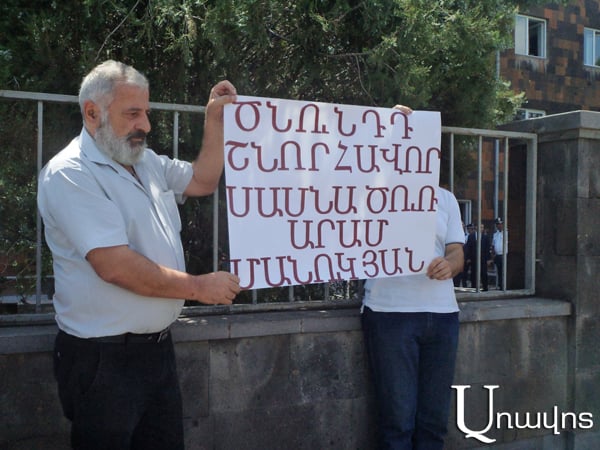 ԾՆՈՒՆԴԴ
ՇՆՈՐՀԱՎՈՐ
ՍԱՍՆԱ ԾՌՌ
ԱՐԱՄ
ՄԱՆՈՒԿՅԱՆ
Առավոտ